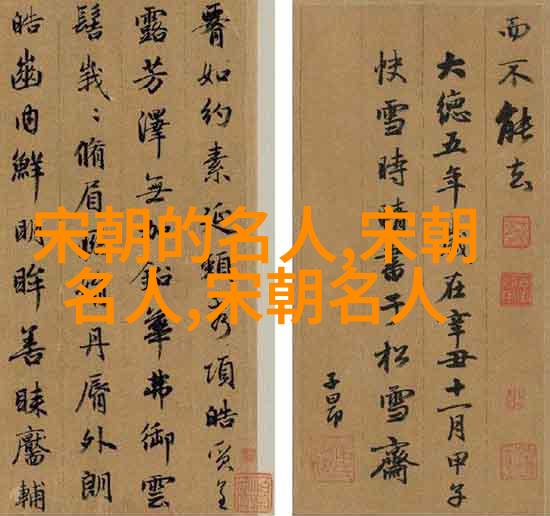 宋朝的名人,宋朝
名人,宋朝名人
而不能去
大德五年歲在辛丑十一月甲子
快雪時晴書于松雪齋
子昂
如約素延頸秀項皓質呈
露芳澤無加鉛華弗御雲
髻峩〻脩眉聯娟丹脣外朗
皓齒内鮮明眸善睞靨輔